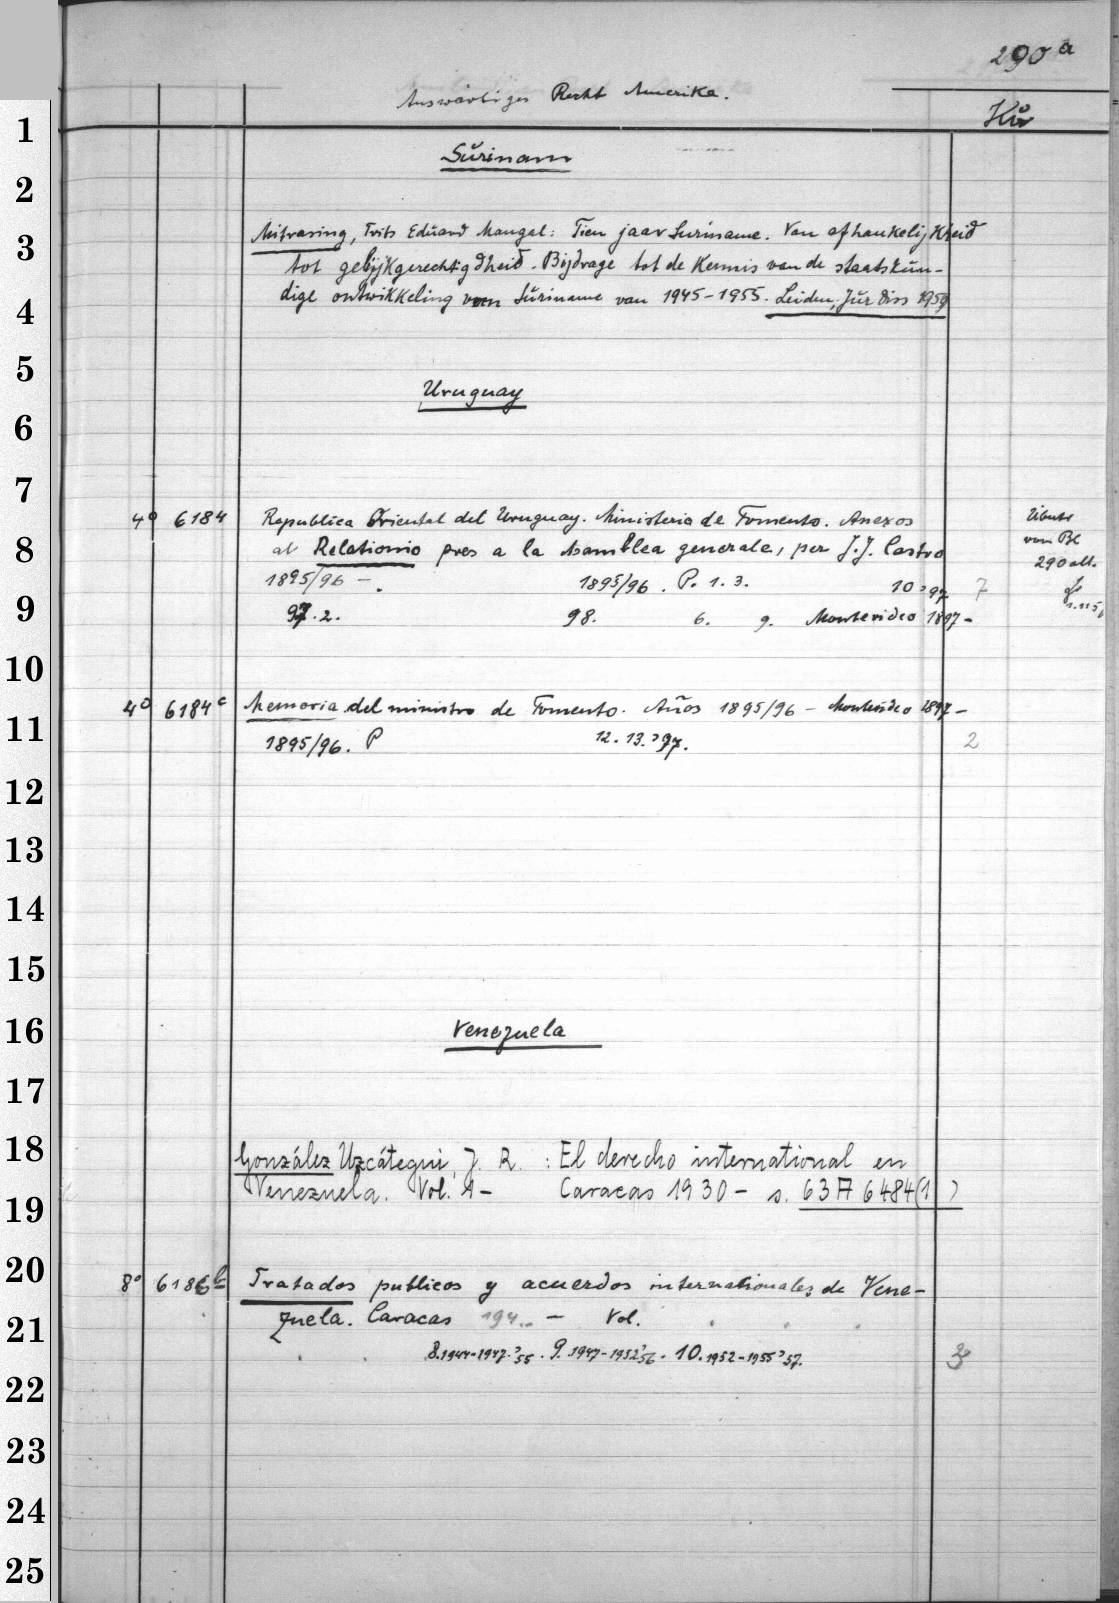 290 a
Auswärtiges Recht Amerika.
Kŭ
1
Sŭrinam
2
3
Mitrasing, Frits Edŭard Mangal: Tien jaar Suriname. Van afhankelijkheid
tot gelijkgerechtigdheid. Bijdrage tot de Kennis van de staatskŭn-
dige ontwikkeling van Sŭriname van 1945-1955. Leiden, Jŭr Diss 1959
4
5
Uruguay
6
7
4° 6184 Republica Oriental del Uruguay. Ministerio de Fomento. Anexos
8
al Relationio pres a la Asamblea generale, per J.J. Castro
von Bl
290 all.
1895/96 - . 1895/96. P. 1. 3. 10 '97 7
9
97. 2. 98. 6. 9. Montevideo 1897-
10
4° 6184 c Memoria del ministro de Fomento. Años 1895/96 - Montevideo 1897-
11
1895/96. P 12. 13. '97. 2
12
13
14
15
16
Venezuela
17
18
González Uzcátegui, J. R. : El derecho international en
Venezuela. Vol. 1- Caracas 1930- s. 63 A 6484(1 )
19
20
8° 6186 b Tratados publicos y acuerdos internationales de Vene-
zuela. Caracas 194.. - Vol.
21
8.1944-1947.'55. 9.1947-1952'56. 10.1952-1955'57. 3
22
23
24
25